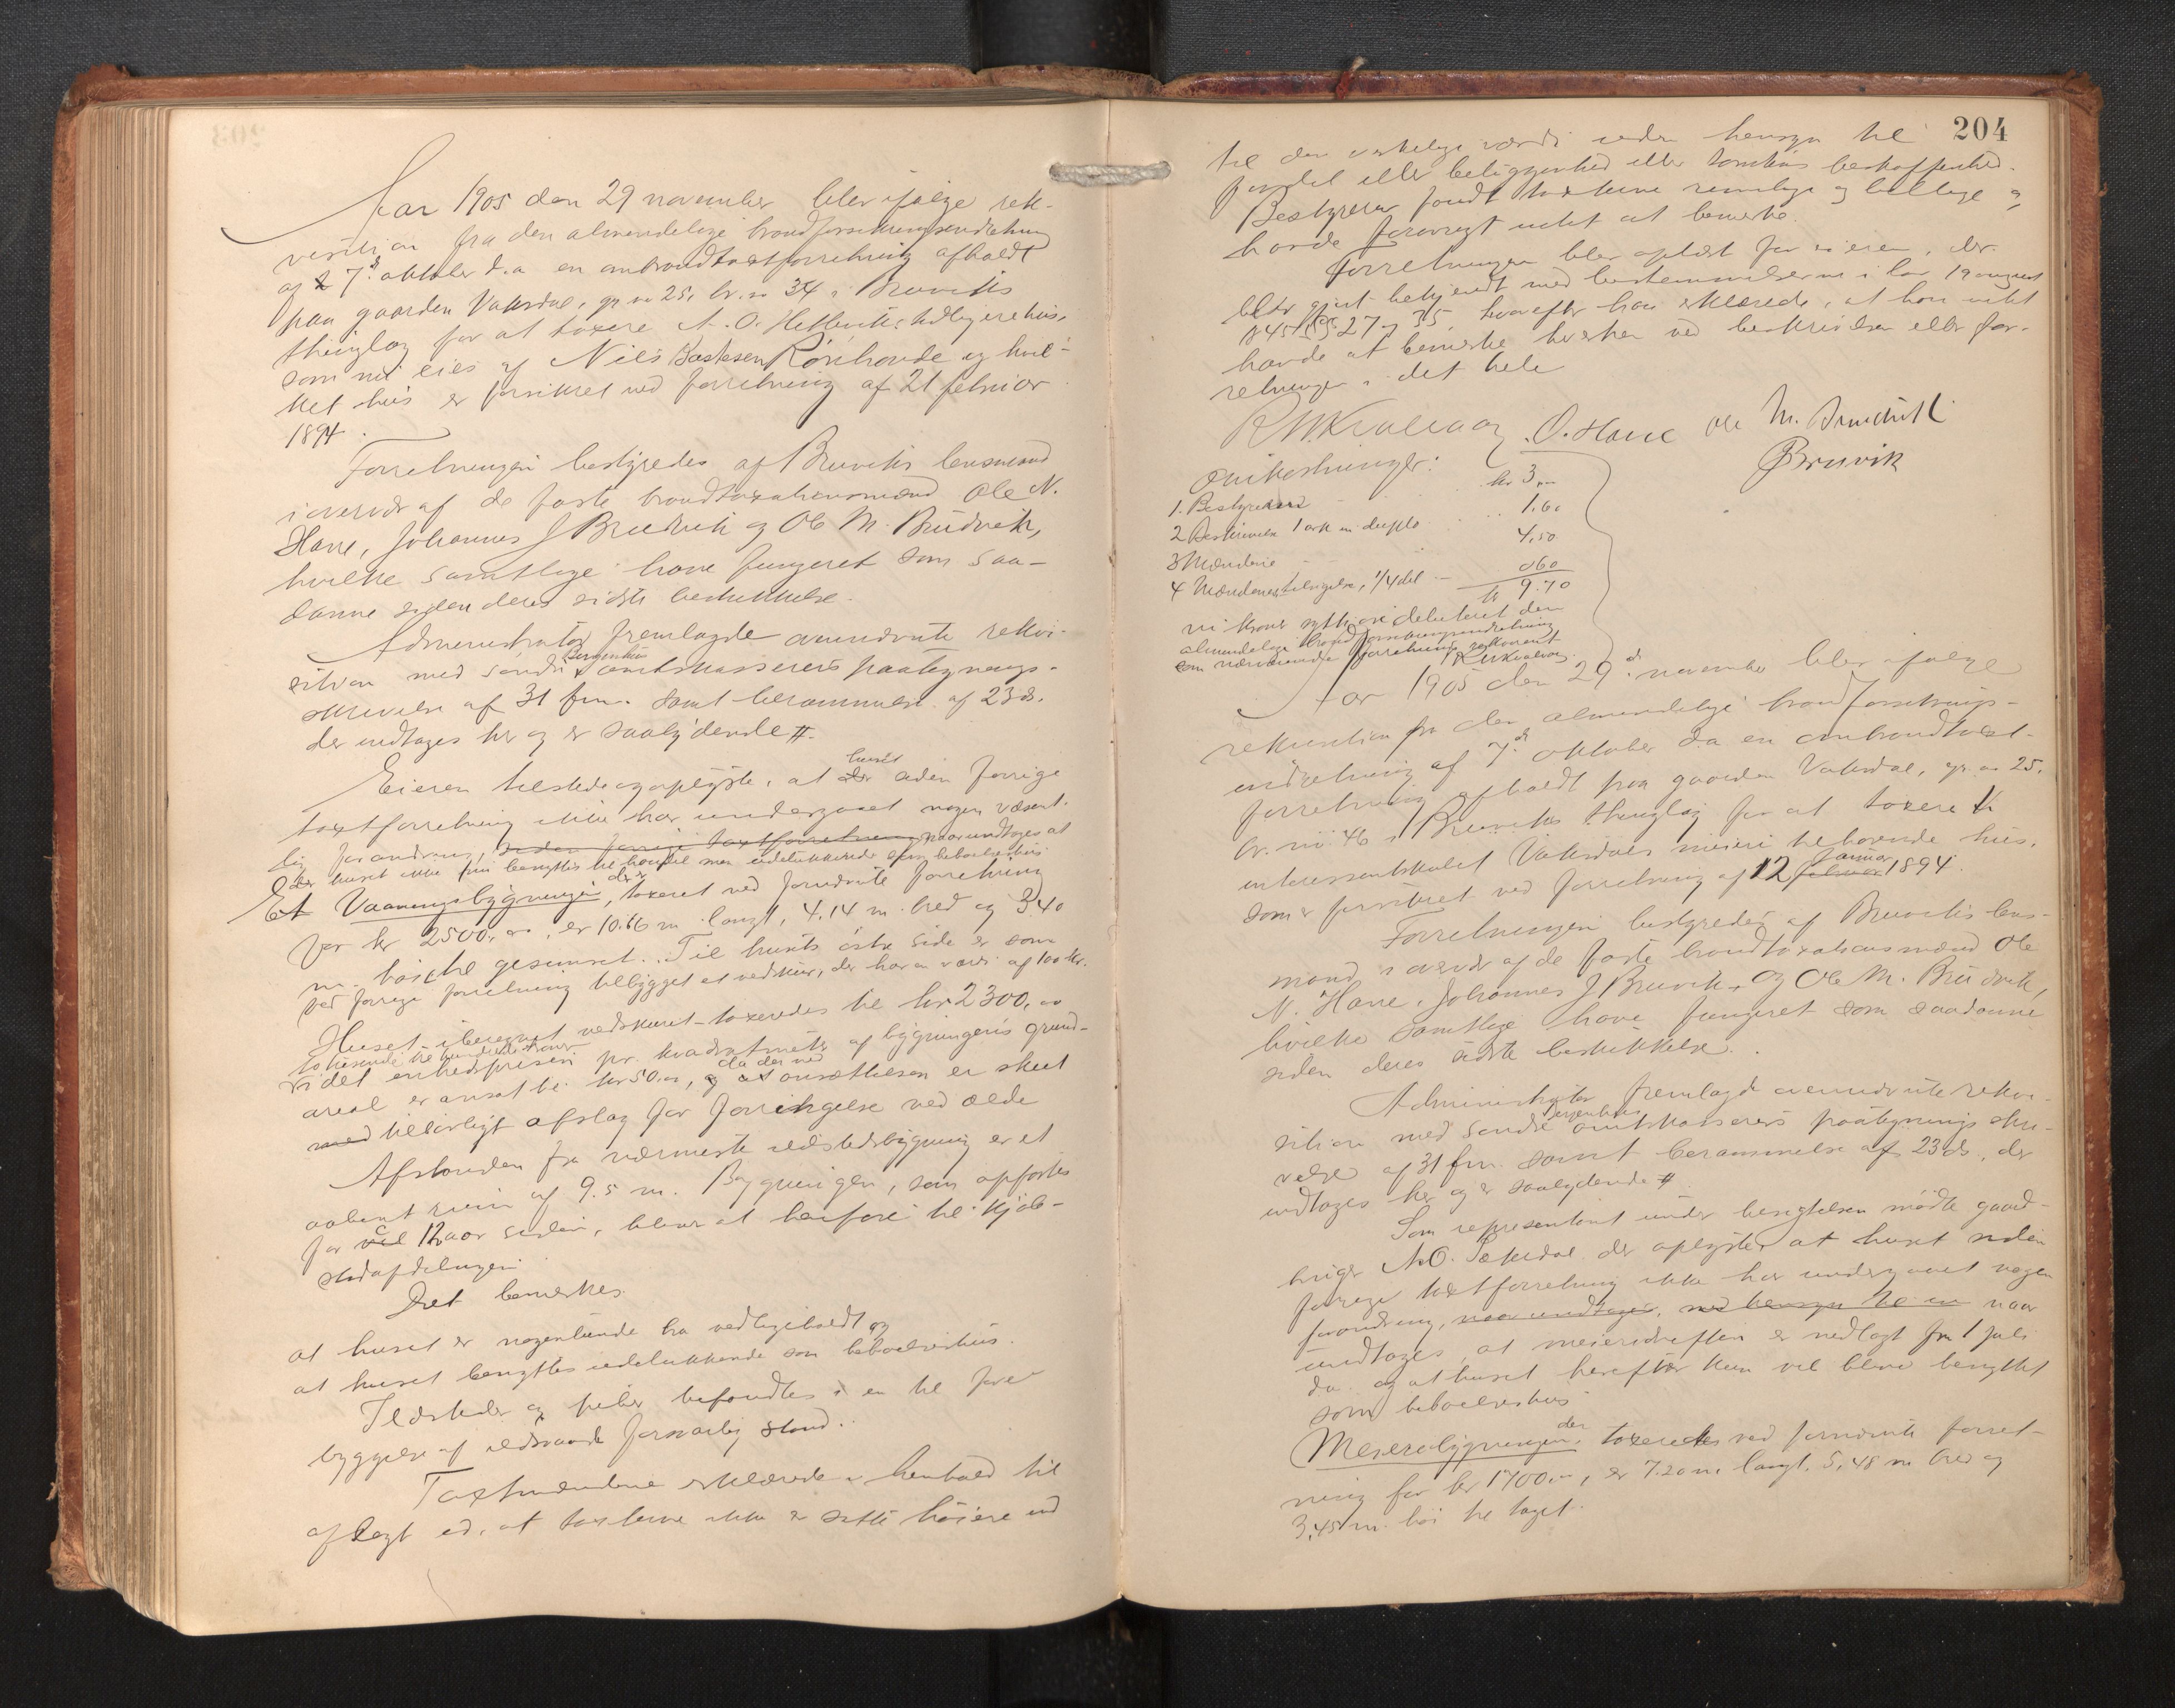 Aar 1905 den 29 november blev ifølge rek-
visition fra den almendelige brandforsikringsindretning
af 7de oktober d.a. en ombrandtaxtforretning afholdt
paa gaarden Vaksdal, gr no 25, br. no 34 i Bruviks
thinglag for at taxere A. O. Helleviks tidligere hus,
som nu eies af Nils Rønhovde og hvil-
ket hus er forsikret ved forretning af 21 februar
1894.
Forretningen bestyredes af Bruviks lensmand
i overvær af de faste brandtaxationsmænd Ole N.
Hane, Johannes J Brudvik og Ole M. Brudvik,
hvilke samtlige have fungeret som saa-
danne siden deres sidste beskikkelse.
Administrator fremlagde omendvnte rekvi-
sition med søndre Bergenhus amtskasserers paategnings-
skrivelse af 31 f.m. samt berammelse af 23 ds.
der indtages her og er saalydende #.
Eieren tilstede og oplyste, at huset siden forrige
taxtforretning ikke har undergaaet nogen væsent-
lig forandring, siden forrige taxtforretning naar undtages at
huset ikke benyttes til handel men udelukkende som beboelseshus
Et Vaaningsbygningen, der er taxeret ved fornævnte forretning
for kr 2500,00, er 10.66 m. langt, 4,14 m. bred og 3.40
m. høi til gesimset. Til husets østre side er som
ved forrige forretning tilbygget et vedskur, der har en værdi af 100 kr.
Huset iberegnet vedskuret taxeredes til kr 2300,00
to tusende tre hundrede kroner
idet enhedsprisen pr. kvadratmeter af bygningens grund-
areal er ansat til kr 50.00, da der ved ansættelsen er skeet
med tilbørligt afslag for forringelse ved ælde
Afstanden fra nærmeste ildstedsbygning er et
aabent rum af 9.5 m. Bygningen, som opførtes
for ca 12 aar siden, blev at henføre til kjøb-
stadafdelingen.
Det bemerkes
at huset er nogenlunde bra vedligeholdt og
at huset benyttes udelukkende som beboelseshus.
Ildsteder og piber befandtes i en til fore-
byggelse af ildsvaade forsvarlig stand.
Taxtmændene erklærede i henhold til
aflagt ed, at taxterne ikke er satte høiere end
204
til den virkelige værdi uden hensyn til
fordel eller beliggenhed eller tomtens beskaffenhed.
Bestyreren fandt taxterne rimelige og billige og
havde forøvrigt intet at bemerke.
Forretningen blev oplæst for eieren, der
blev gjort bekjendt med bestemmelserne i lov 19 august
1845 §§ 27-35, hvorefter han erklærede, at han intet
havde at bemerke hverken ved beskrivelsen eller for-
retningen i det hele
O. Hane Ole M. Brudvik
J Bruvik
Omkostninger:
1. Bestyreren kr 3,00
2 Beskrivelse 1 ark in duplo 1.60
3 Mændene 4,50
4 Mændenes tilsigelse, 1/4 del 0 60
kr 9.70
ni kroner sytti øre debiteret den
almendelige brandforsikringsindretning
som nærværende forretnings rekvirent
Aar 1905 den 29de november blev ifølge
rekvisition fra den almendelige brandforsikrings-
indretning af 7de oktober d.a en ombrandtaxt-
forretning afholdt paa gaarden Vaksdal, gr no 25.
br. no. 46 i Bruviks thinglag for at taxere
interessentskabet Vaksdals meieri tilhørende hus,
som er forsikret ved forretning af 12 februar januar 1894.
Forretningen bestyredes af Bruviks lens-
mand i overvær af de faste brandtaxationsmænd Ole
N. Hane, Johannes J Bruvik, og Ole M. Brudvik,
hvilke samtlige have fungeret som saadanne
siden deres sidste beskikkelse.
Administrator fremlagde omendvnte rekvi-
sition med søndre Bergenhus amtskasserers paategnings skri-
velse af 31 f.m. samt berammelse af 23 ds, der
indtages her og er saalydende #
Som representant under besigtelsen mødte gaard-
bruger N. O. der oplyste at huset siden
forrige taxtforretning ikke har undergaaet nogen
forandring, naar undtages, med hensyn til en naar
undtages, at meieridriften er nedlagt fra 1 juli
d.a. og at huset herefter kun vil blive benyttet
som beboelseshus
Meieribygningen, der taxeredes ved fornævnte forret-
ning for kr 1700.00, er 7.20 m. langt, 5,48 m bred og
3,45 m. høi til taget.